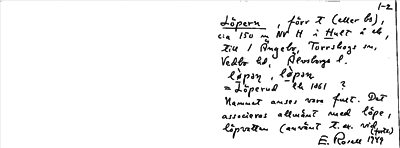 1-2
Löpern, förr t (eller bs),
cia 150 m NV H i Hult i ek,
till 1 Ängebo, Torrskogs sn,
Vedbo hd, Älvsborgs l.
= Löperud ek 1061 ?
Namnet anses vara fnet. Det
associeras allmänt med löpe,
löpvatten (använt t. ex. vid
E. Rosell 1949